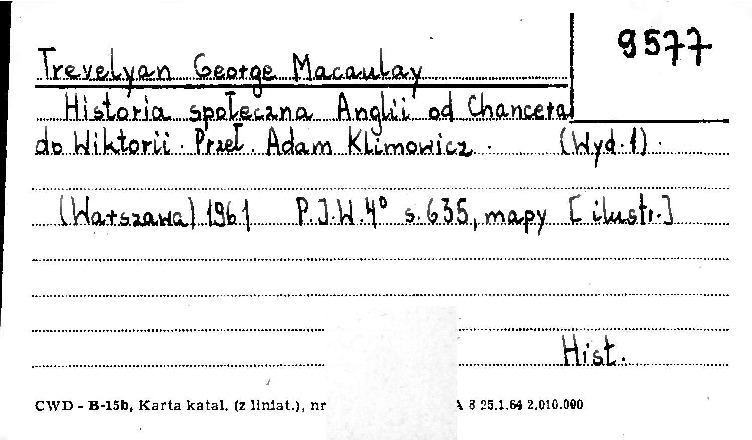 9577
Trevelyan George Macaulay
Historia społeczna Anglii od Chancera
do Wiktorii. Przeł. Adam Klimowicz. (Wyd.1).
(Warszawa) 1961 P.I.W. 4° s. 635, mapy [ilustr.]
Hist.
CWD - B-15b, Karta katal. (z liniat.), nr A 8 25.1.64 2.010.000